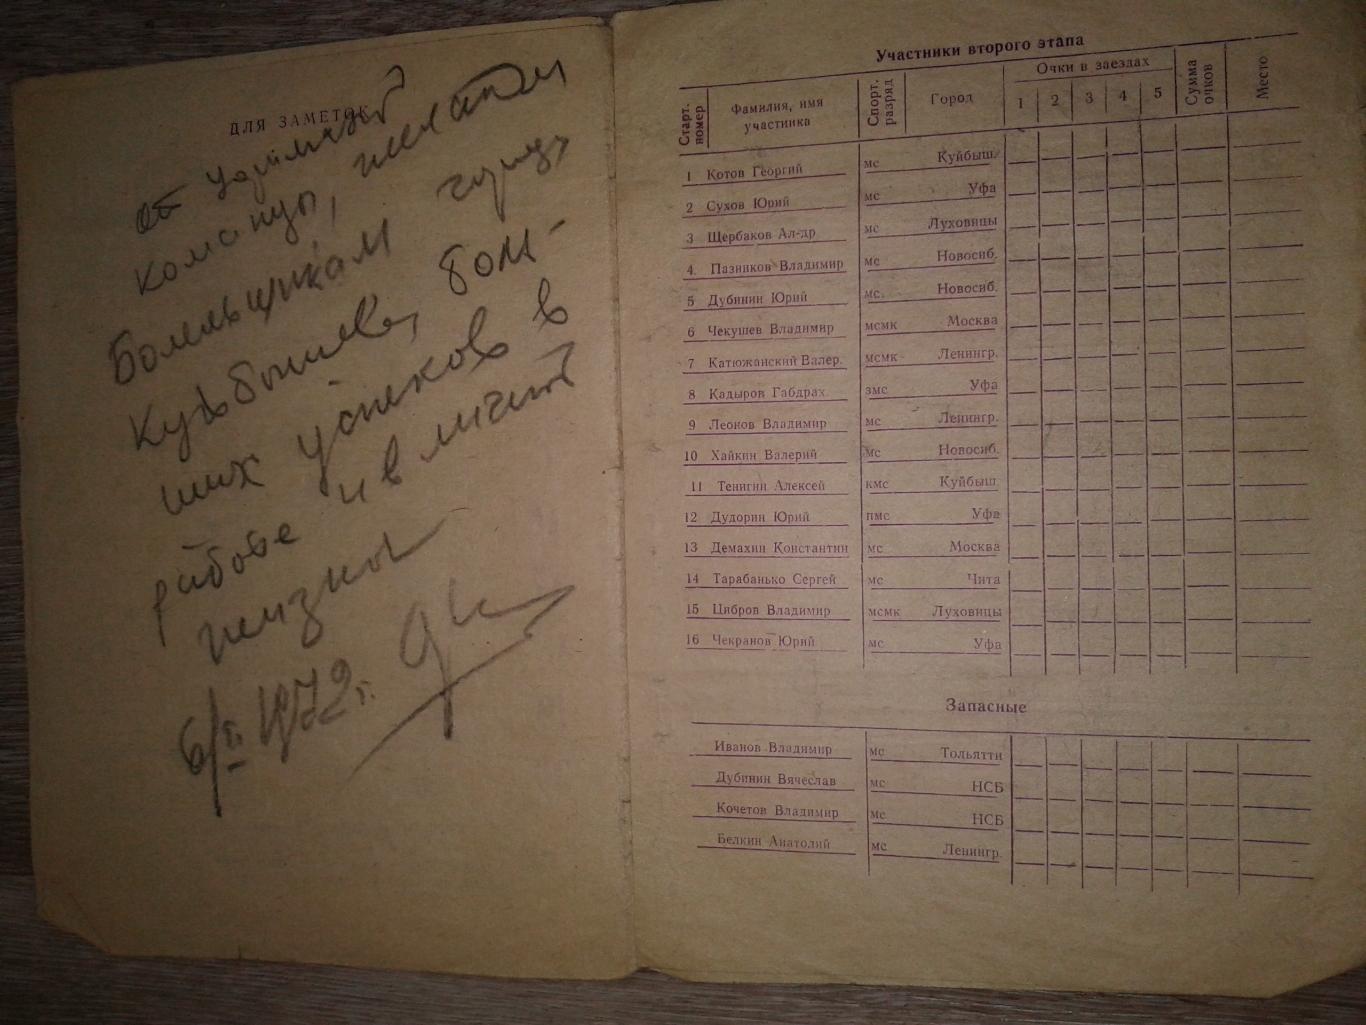 ДЛЯ ЗАМЕТОК
от
команды, желаем
Болельщикам города
Куйбышева, боль-
ших успехов в
работе и в личной
жизни
6/II 1972 г.
Участники второго этапа
Старт. номер Фамилия, имя участника Спорт. разряд Город Очки в заездах 1 2 3 4 5 Сумма очков Место
1 Котов Георгий мс Куйбыш.
2 Сухов Юрий мс Уфа
3 Щербаков Ал-др мс Луховицы
4. Пазников Владимир мс Новосиб.
5 Дубинин Юрий мс. Новосиб.
6 Чекушев Владимир мсмк Москва
7 Катюжанский Валер. мсмк Ленингр.
8 Кадыров Габдрах. змс Уфа
9 Леонов Владимир мс Ленингр.
10 Хайкин Валерий мс Новосиб.
11 Тенигин Алексей кмс Куйбыш.
12 Дудорин Юрий пмс Уфа
13 Демахин Константин мс Москва
14 Тарабанько Сергей мс Чита
15 Цибров Владимир мсмк Луховицы
16 Чекранов Юрий мс Уфа
Запасные
Иванов Владимир мс Тольятти
Дубинин Вячеслав мс НСБ
Кочетов Владимир мс НСБ
Белкин Анатолий мс Ленингр.